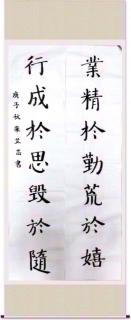 業精於勤荒於嬉
行成於思毀於隨
庚子秋